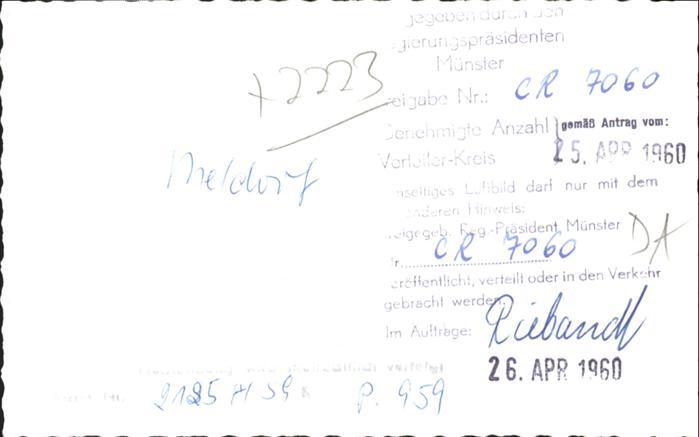 gegeben durch den
gierungspräsidenten
Münster
+2223
eigabe Nr.: CR 7060
Genehmigte Anzahl gemäß Antrag vom:
Verteiler-Kreis 25. APR 1960
Meldorf
nseitiges Luftbild darf nur mit dem
onderen Hinweis:
eigegeb. Reg.-Präsident, Münster
r. CR 7060
DA
eröffentlicht, verteilt oder in den Verkehr
gebracht werden.
Im Auftrage:
26. APR 1960
wird strafrechtlich verfolgt
Nr. 2125 H 59 P. 959